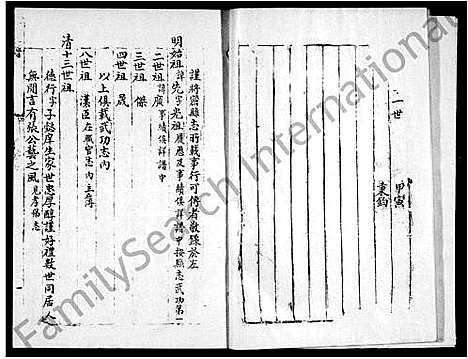 二世
甲寅
秉鈞
謹將密縣志所載事行可傳者敬錄於左
明始祖 諱先字光祖履歷及事績俱詳譜中按縣志武功第一
二世祖 諱廣事績俱詳譜中
三世祖 傑
四世祖 晟
以上俱載武功志內
八世祖 漢臣在職官志內主簿
清十三世祖
德行字子懿庠生家世忠厚醇謹好禮數世同居人
無間言有張公藝之風見孝弟志
FamilySearch International